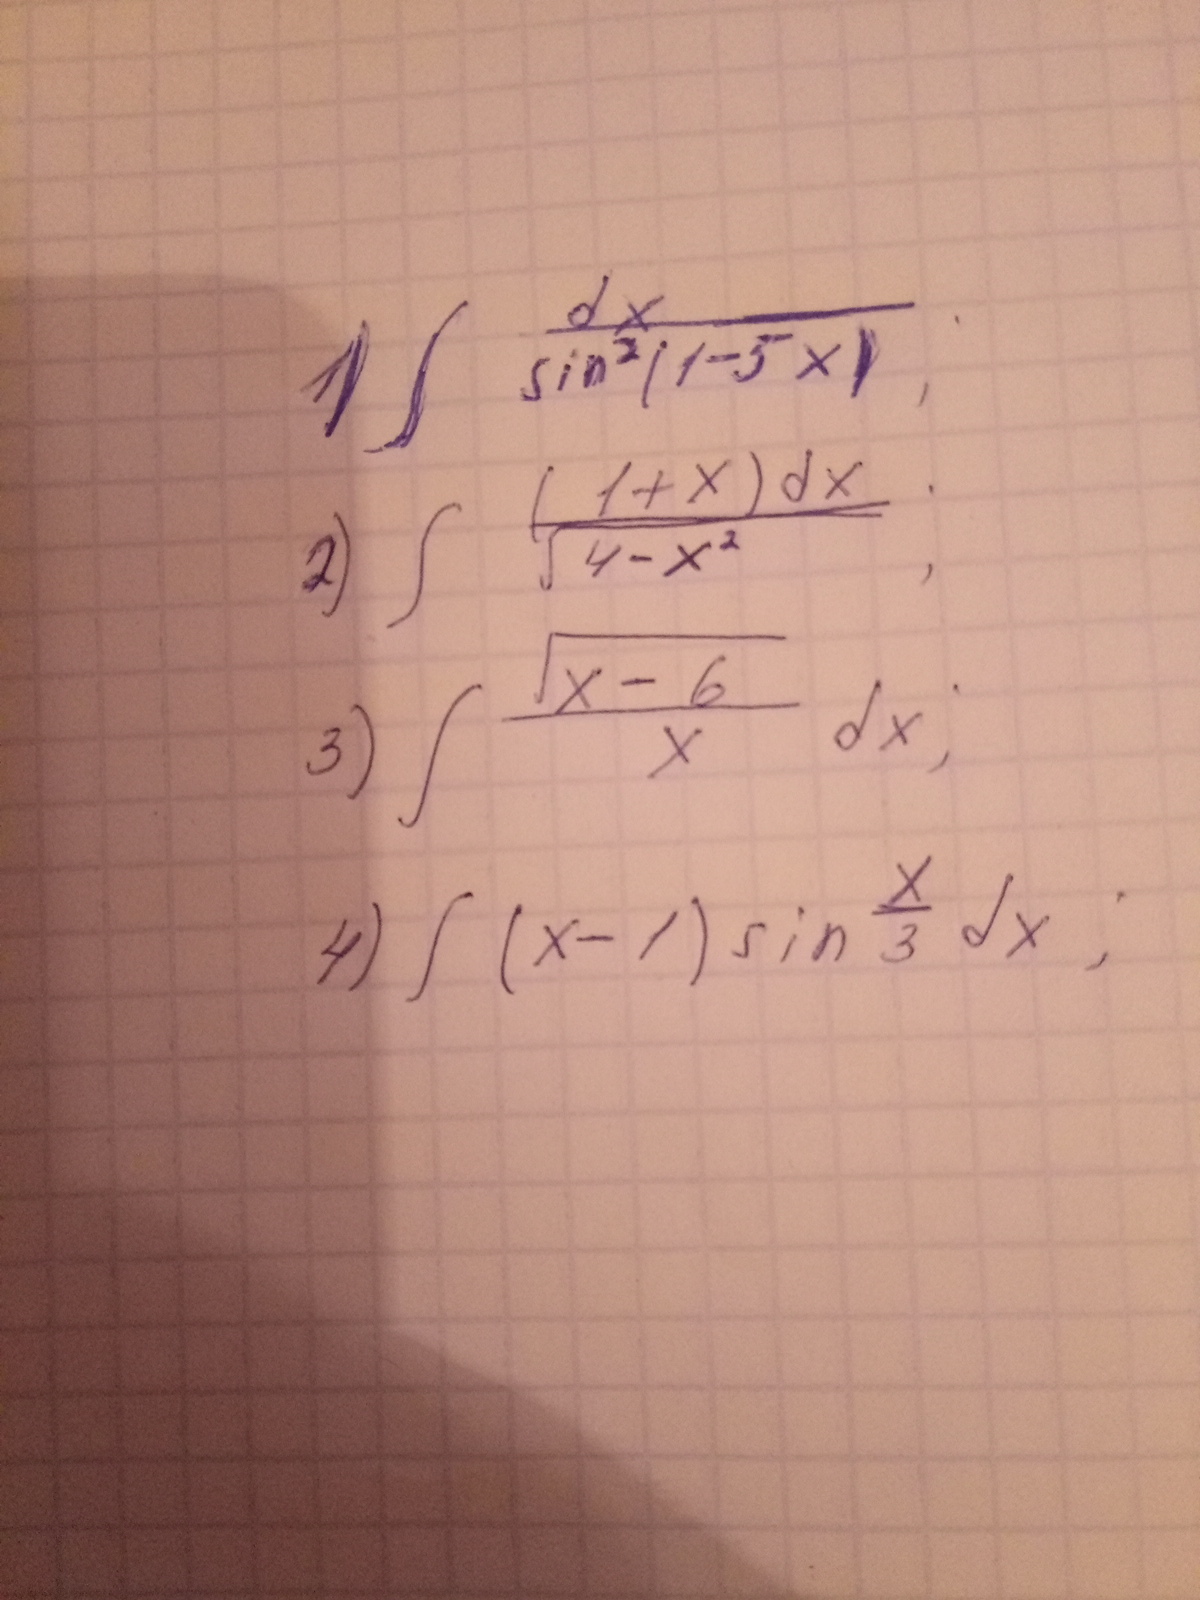 1) ∫ dx / sin²(1-5x) ;
2) ∫ (1+x)dx / √(4-x²) ;
3) ∫ √(x-6) / x dx ;
4) ∫ (x-1) sin x/3 dx ;